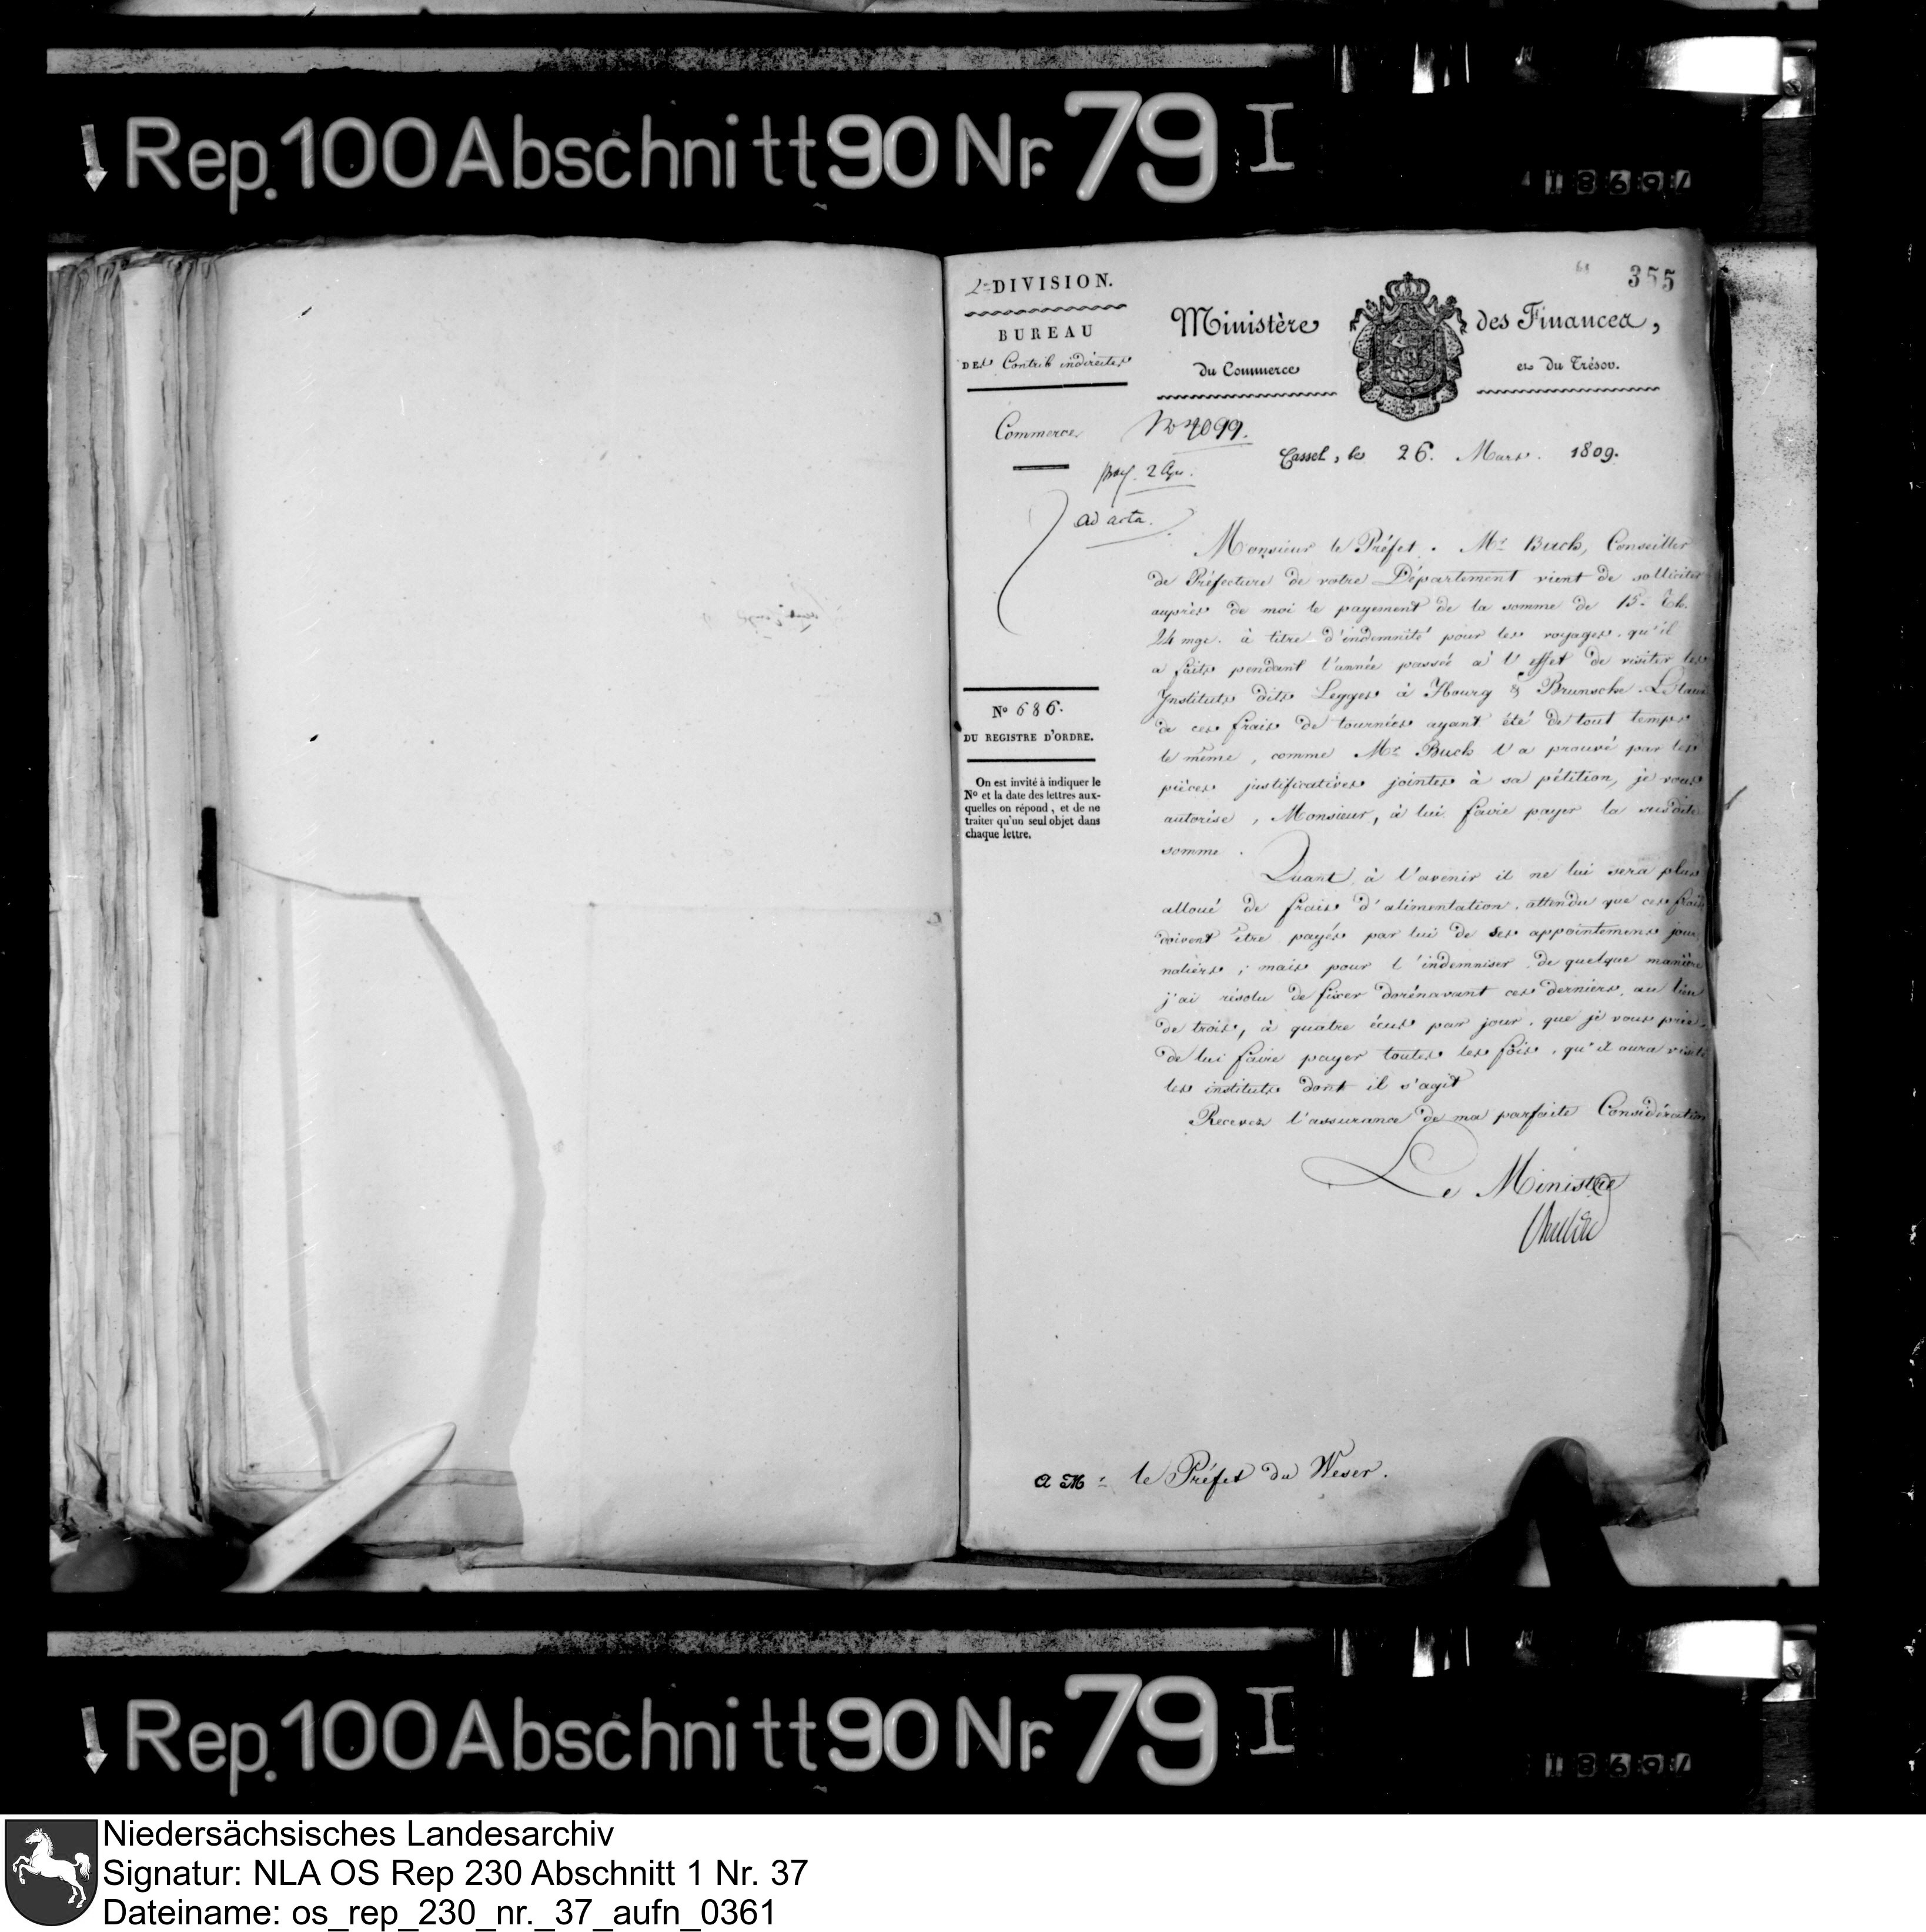 Rep. 100 Abschnitt 90 Nr. 79 I
1869/
355
2e DIVISION.
BUREAU
DES Contrib indirectes
Ministère des Finances,
du Commerce et du Trésor.
Commerce
No 4099.
Cassel, le 26. Mars. 1809.
ad acta.
Monsieur le Préfet. Mr. Buch, Conseiller
de Préfecture de votre Département vient de solliciter
auprès de moi le payement de la somme de 15. Th.
24 mge. à titre d'indemnité pour les voyages, qu'il
a faits pendant l'année passée à l'effet de visiter les
Instituts dits Legges à Iburg & Brunsche. Le taux
de ces frais de tournées ayant été de tout temps
le même, comme Mr. Buch l'a prouvé par les
pièces justificatives jointes à sa pétition, je vous
autorise, Monsieur, à lui faire payer la susdite
somme.
Quant à l'avenir il ne lui sera plus
alloué de frais d'alimentation, attendu que ces frais
doivent être payés par lui de ses appointemens jour
naliers; mais pour l'indemniser de quelque manière
j'ai résolu de fixer dorénavant ces derniers, au lieu
de trois, à quatre écus par jour, que je vous prie
de lui faire payer toutes les fois, qu'il aura visité
les instituts dont il s'agit
Recevez l'assurance de ma parfaite Considération
Le Ministre
No 686.
DU REGISTRE D'ORDRE.
On est invité à indiquer le
No et la date des lettres aux-
quelles on répond, et de ne
traiter qu'un seul objet dans
chaque lettre.
A Mr. le Préfet du Weser.
Rep. 100 Abschnitt 90 Nr. 79 I
1869/
Niedersächsisches Landesarchiv
Signatur: NLA OS Rep 230 Abschnitt 1 Nr. 37
Dateiname: os_rep_230_nr._37_aufn_0361